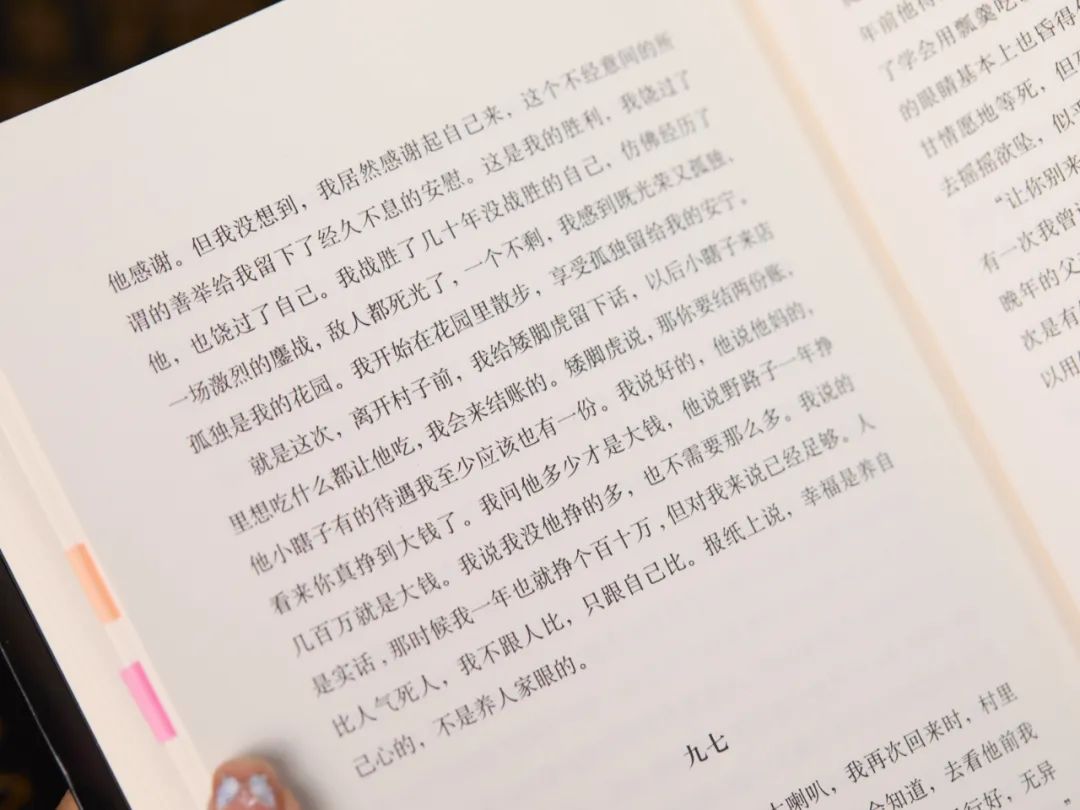 他感谢。但我没想到，我居然感谢起自己来，这个不经意间的所
谓的善举给我留下了经久不息的安慰。这是我的胜利，我饶过了
他，也饶过了自己。我战胜了几十年没战胜的自己，仿佛经历了
一场激烈的鏖战，敌人都死光了，一个不剩，我感到既光荣又孤独。
孤独是我的花园。我开始在花园里散步，享受孤独留给我的安宁。
就是这次，离开村子前，我给矮脚虎留下话，以后小瞎子来店
里想吃什么都让他吃，我会来结账的。矮脚虎说，那你要结两份账。
他小瞎子有的待遇我至少应该也有一份。我说好的，他说他妈的，
看来你真挣到大钱了。我问他多少才是大钱，他说野路子一年挣
几百万就是大钱。我说我没他挣的多，也不需要那么多。我说的
是实话，那时候我一年也就挣个百十万，但对我来说已经足够。人
比人气死人，我不跟人比，只跟自己比。报纸上说，幸福是养自
己心的，不是养人家眼的。
九七
大喇叭，我再次回来时，村里
知道，去看他前我
行好，无异
年前他得
了学会用瓢羹吃
的眼睛基本上也昏得
甘情愿地等死，但
去摇摇欲坠，似乎
“让你别来
有一次我曾
晚年的父
次是有
以用